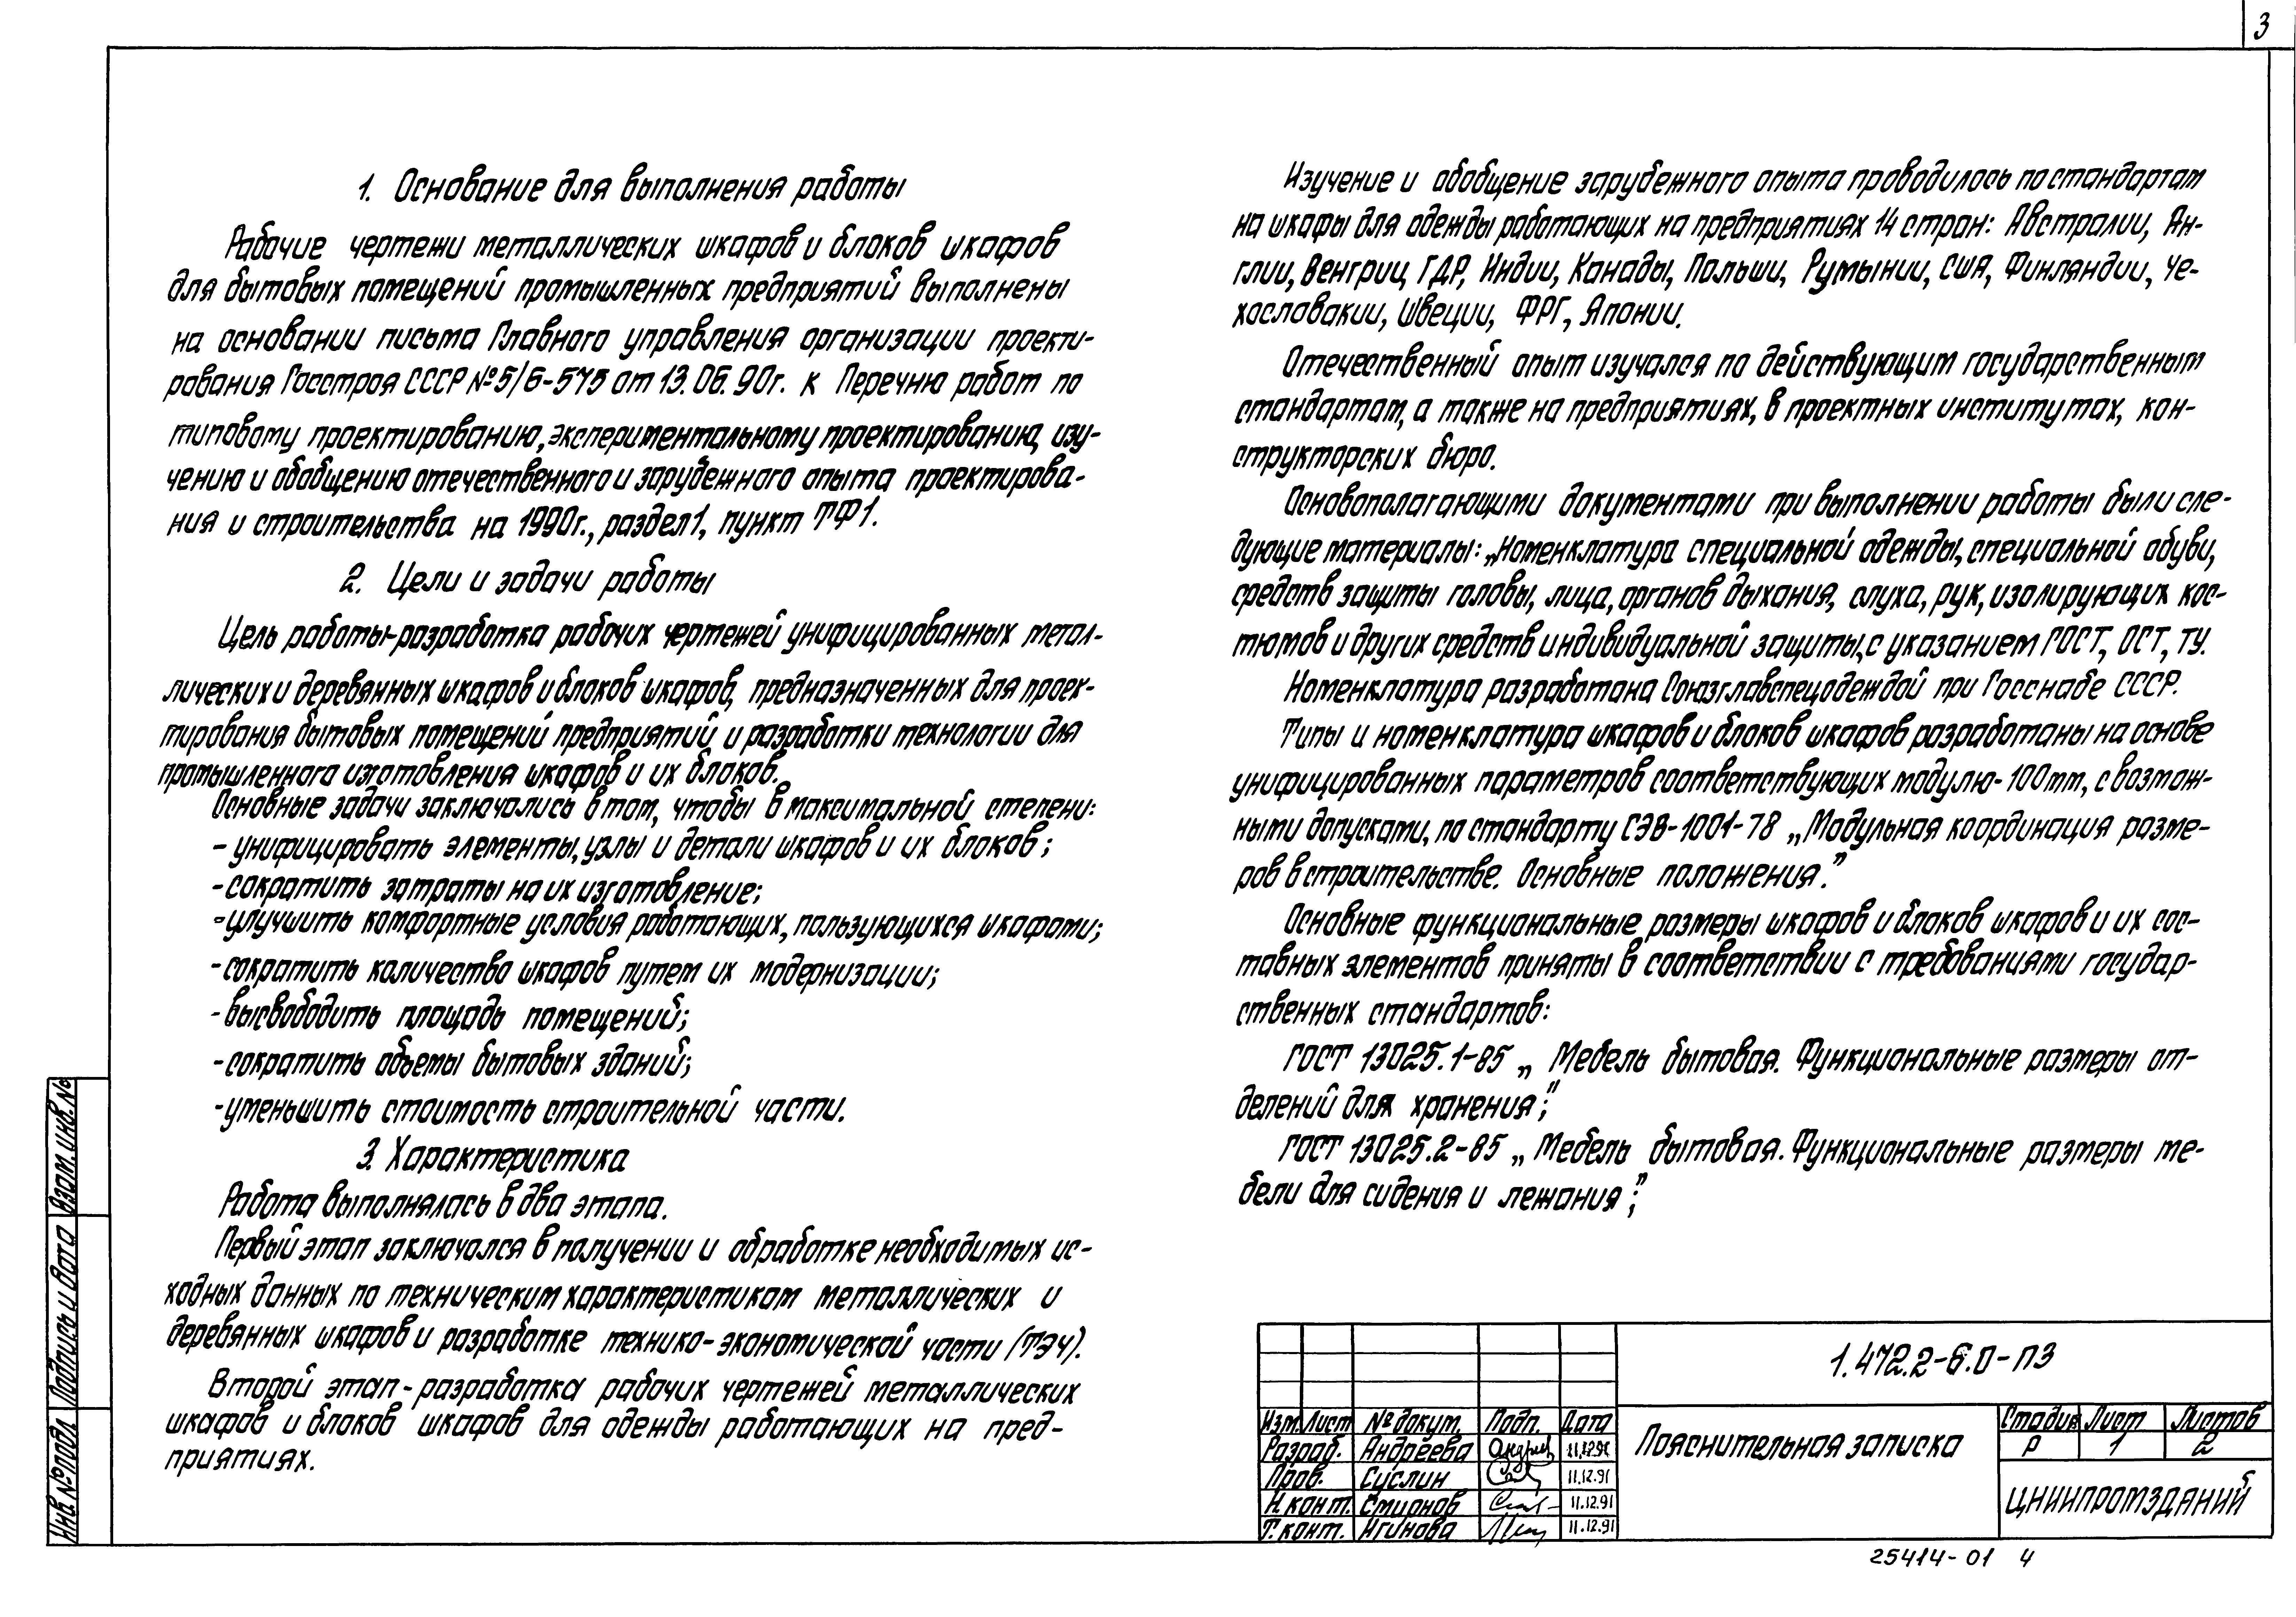 3
1. Основание для выполнения работы
Рабочие чертежи металлических шкафов и блоков шкафов
для бытовых помещений промышленных предприятий выполнены
на основании письма Главного управления организации проекти-
рования Госстроя СССР №5/6-575 от 13.06.90г. к Перечню работ по
типовому проектированию, экспериментальному проектированию, изу-
чению и обобщению отечественного и зарубежного опыта проектирова-
ния и строительства на 1990г., раздел 1, пункт ТФ1.
2. Цели и задачи работы
Цель работы-разработка рабочих чертежей унифицированных метал-
лических и деревянных шкафов и блоков шкафов, предназначенных для проек-
тирования бытовых помещений предприятий и разработки технологии для
промышленного изготовления шкафов и их блоков.
Основные задачи заключались в том, чтобы в максимальной степени:
- унифицировать элементы, узлы и детали шкафов и их блоков;
- сократить затраты на их изготовление;
- улучшить комфортные условия работающих, пользующихся шкафами;
- сократить количество шкафов путем их модернизации;
- высвободить площадь помещений;
- сократить объемы бытовых зданий;
- уменьшить стоимость строительной части.
3. Характеристика
Работа выполнялась в два этапа.
Первый этап заключался в получении и обработке необходимых ис-
ходных данных по техническим характеристикам металлических и
деревянных шкафов и разработке технико-экономической части (ТЭЧ).
Второй этап - разработка рабочих чертежей металлических
шкафов и блоков шкафов для одежды работающих на пред-
приятиях.
Изучение и обобщение зарубежного опыта проводилось по стандартам
на шкафы для одежды работающих на предприятиях 14 стран: Австралии, Ан-
глии, Венгрии, ГДР, Индии, Канады, Польши, Румынии, США, Финляндии, Че-
хословакии, Швеции, ФРГ, Японии.
Отечественный опыт изучался по действующим государственным
стандартам, а также на предприятиях, в проектных институтах, кон-
структорских бюро.
Основополагающими документами при выполнении работы были сле-
дующие материалы: „Номенклатура специальной одежды, специальной обуви,
средств защиты головы, лица, органов дыхания, слуха, рук, изолирующих кос-
тюмов и других средств индивидуальной защиты„ с указанием ГОСТ, ОСТ, ТУ.
Номенклатура разработана Союзглавспецодеждой при Госснабе СССР.
Типы и номенклатура шкафов и блоков шкафов разработаны на основе
унифицированных параметров соответствующих модулю - 100мм, с возмож-
ными допусками, по стандарту СЭВ-1001-78 „Модульная координация разме-
ров в строительстве. Основные положения."
Основные функциональные размеры шкафов и блоков шкафов и их сос-
тавных элементов приняты в соответствии с требованиями государ-
ственных стандартов:
ГОСТ 13025.1-85 „ Мебель бытовая. Функциональные размеры от-
делений для хранения";
ГОСТ 13025.2-85 „ Мебель бытовая. Функциональные размеры ме-
бели для сидения и лежания";
Взам. инв. №
Подпись и дата
Инв. № подл.
1.472.2-6.0-ПЗ
Изм. Лист № докум. Подп. Дата
Разраб. Андреева 11.12.91
Пров. Суслин 11.12.91
Н. конт. Смирнов 11.12.91
Т. конт. Нгинова 11.12.91
Пояснительная записка
Стадия Лист Листов
Р 1 2
ЦНИИПРОМЗДАНИЙ
25414-01 4